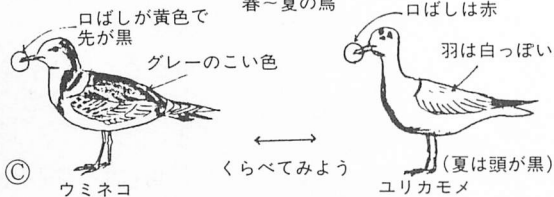 春～夏の鳥
口ばしが黄色で
先が黒
グレーのこい色
口ばしは赤
羽は白っぽい
くらべてみよう
(夏は頭が黒)
Ⓒ
ウミネコ
ユリカモメ